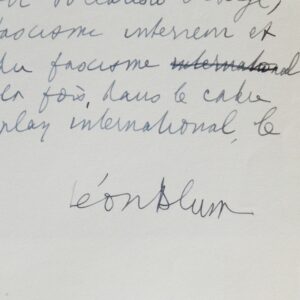 fascisme intérieur et
du fascisme international
la fois, dans le cadre
play international, le
Léon Blum